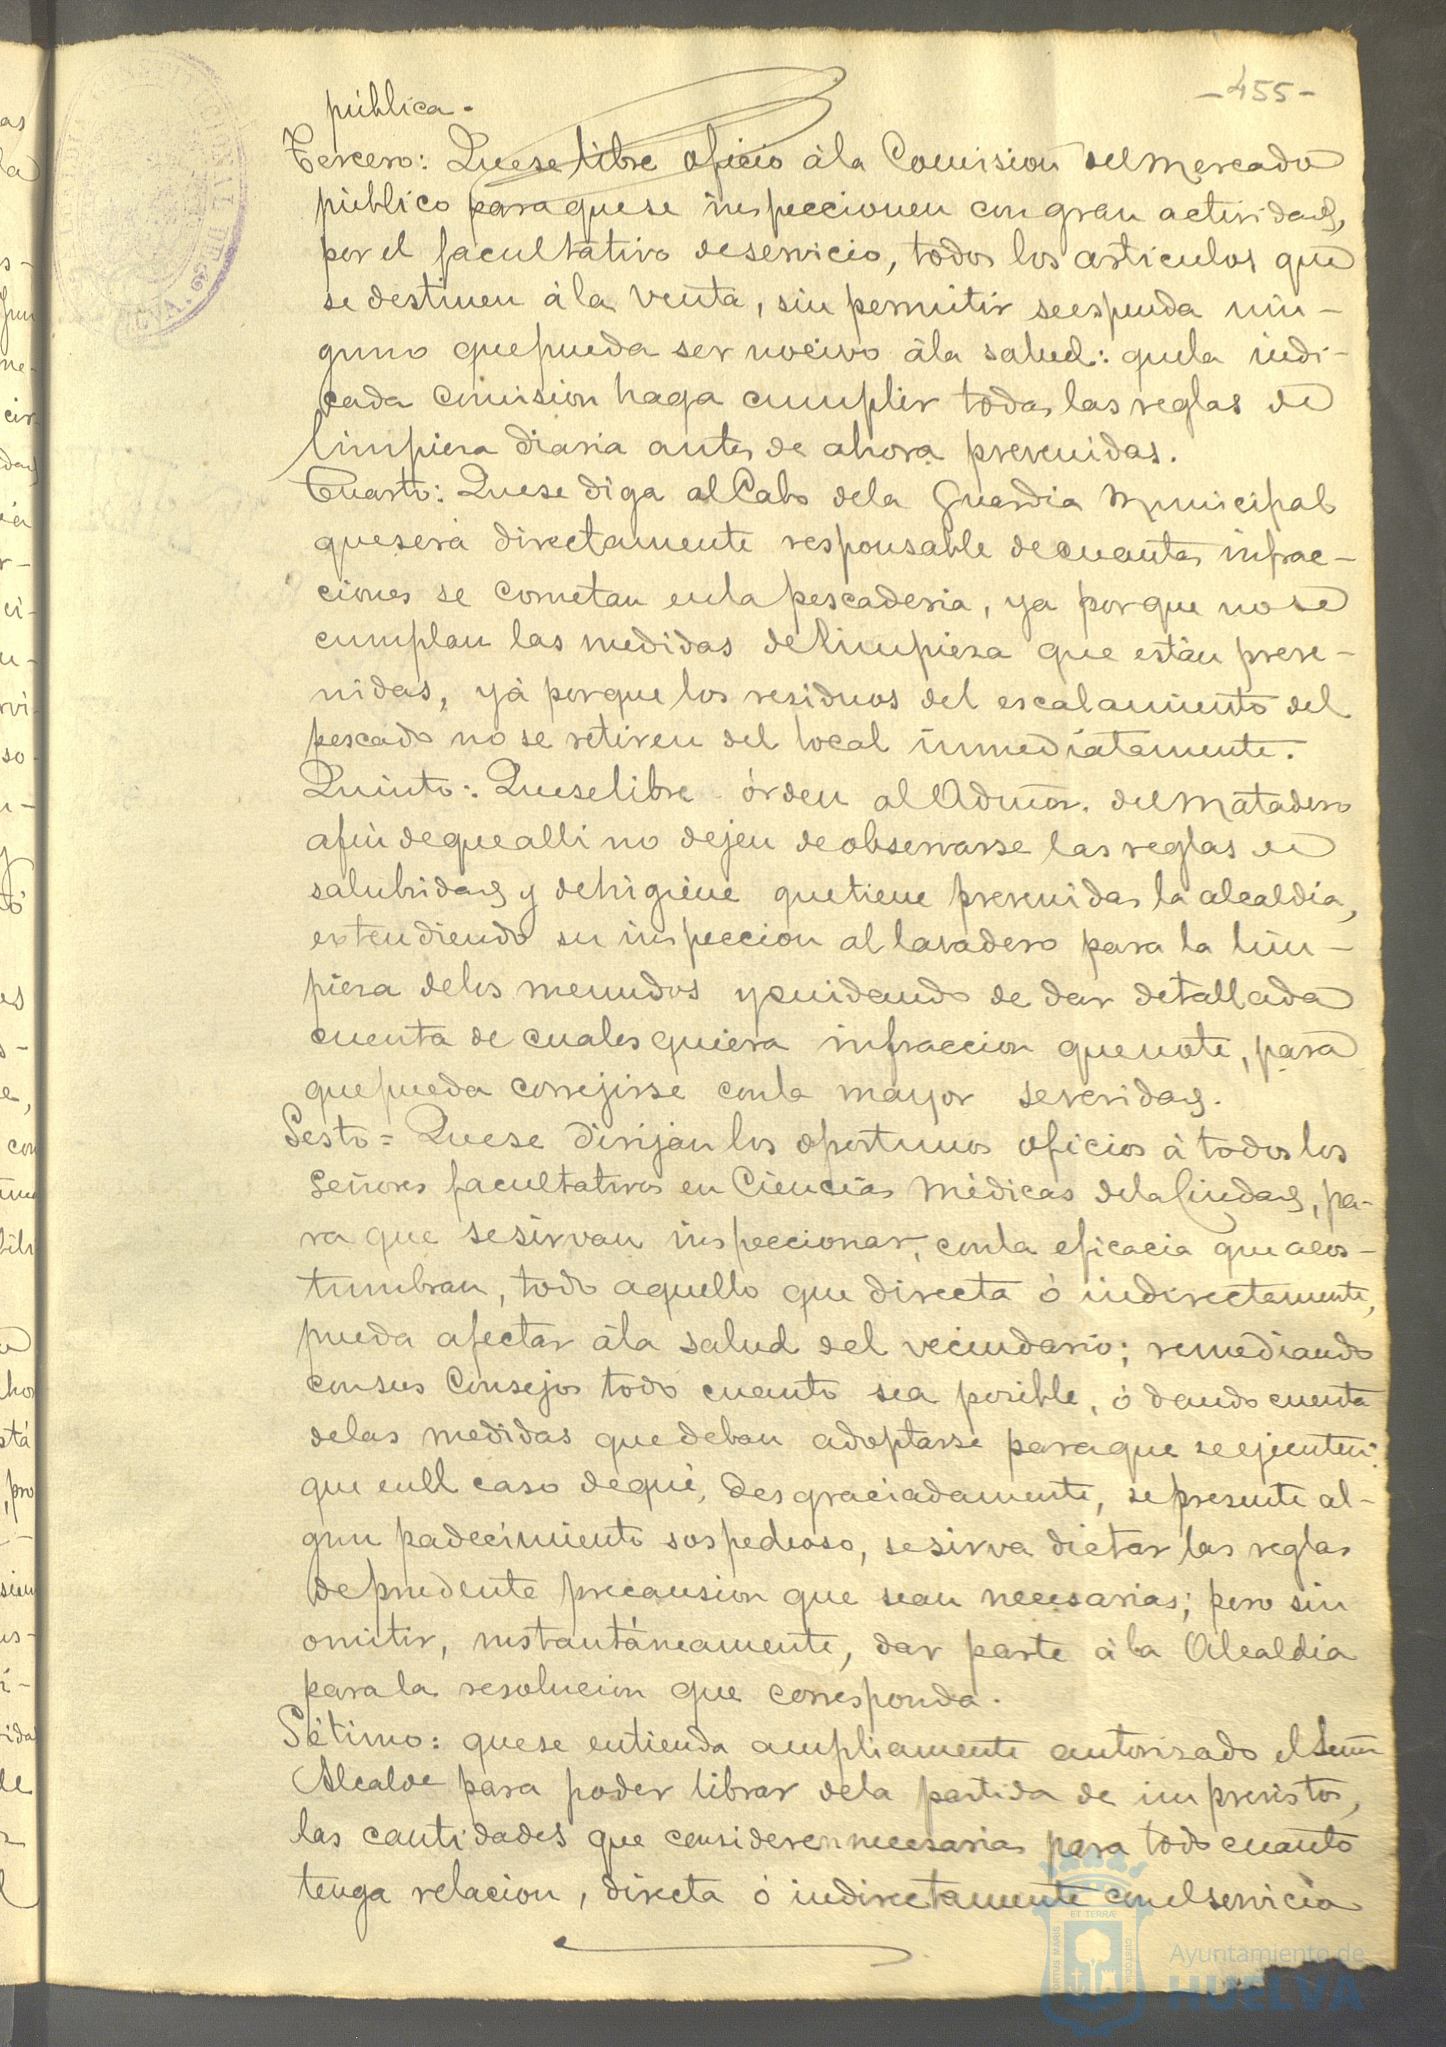 -455-
pública.
Tercero: Que se libre oficio á la Comision del mercado
público para que se inspeccionen con gran actividad,
por el facultativo de servicio, todos los artículos que
se destinen á la venta, sin permitir se espenda nin-
guno que pueda ser nocivo á la salud: que la indi-
cada comision haga cumplir todas las reglas de
limpieza diaria antes de ahora prevenidas.
Cuarto: Que se diga al Cabo de la Guardia Municipal
que será directamente responsable de cuantas infrac-
ciones se cometan en la pescaderia, ya porque no se
cumplan las medidas de limpieza que están preve-
nidas, yá porque los residuos del escalamiento del
pescado no se retiren del local inmediatamente.
Quinto: Que se libre órden al Admor. del Matadero
afin de que alli no dejen de observarse las reglas de
salubridad y de higiene que tiene prevenidas la alcaldía,
extendiendo su inspeccion al lavadero para la lim-
pieza de los menudos y cuidando de dar detallada
cuenta de cualesquiera infraccion que note, para
que pueda correjirse con la mayor severidad.
Sesto= Que se dirijan los oportunos oficios á todos los
Señores facultativos en Ciencias Médicas de la Ciudad, pa-
ra que se sirvan inspeccionar, con la eficacia que acos-
tumbran, todo aquello que directa ó indirectamente,
pueda afectar á la salud del vecindario; remediando
con sus Consejos todo cuanto sea posible, ó dando cuenta
de las medidas que deban adoptarse para que se ejecuten:
que en el caso de qué, desgraciadamente, se presente al-
gun padecimiento sospechoso, se sirva dictar las reglas
de prudente precausion que sean necesarias; pero sin
omitir, instantáneamente, dar parte á la Alcaldía
para la resolucion que corresponda.
Sétimo: que se entienda ampliamente autorizado el Señor
Alcalde para poder librar de la partida de imprevistos,
las cantidades que consideren necesarias para todo cuanto
tenga relacion, directa ó indirectamente con el servicio
Ayuntamiento de
HUELVA